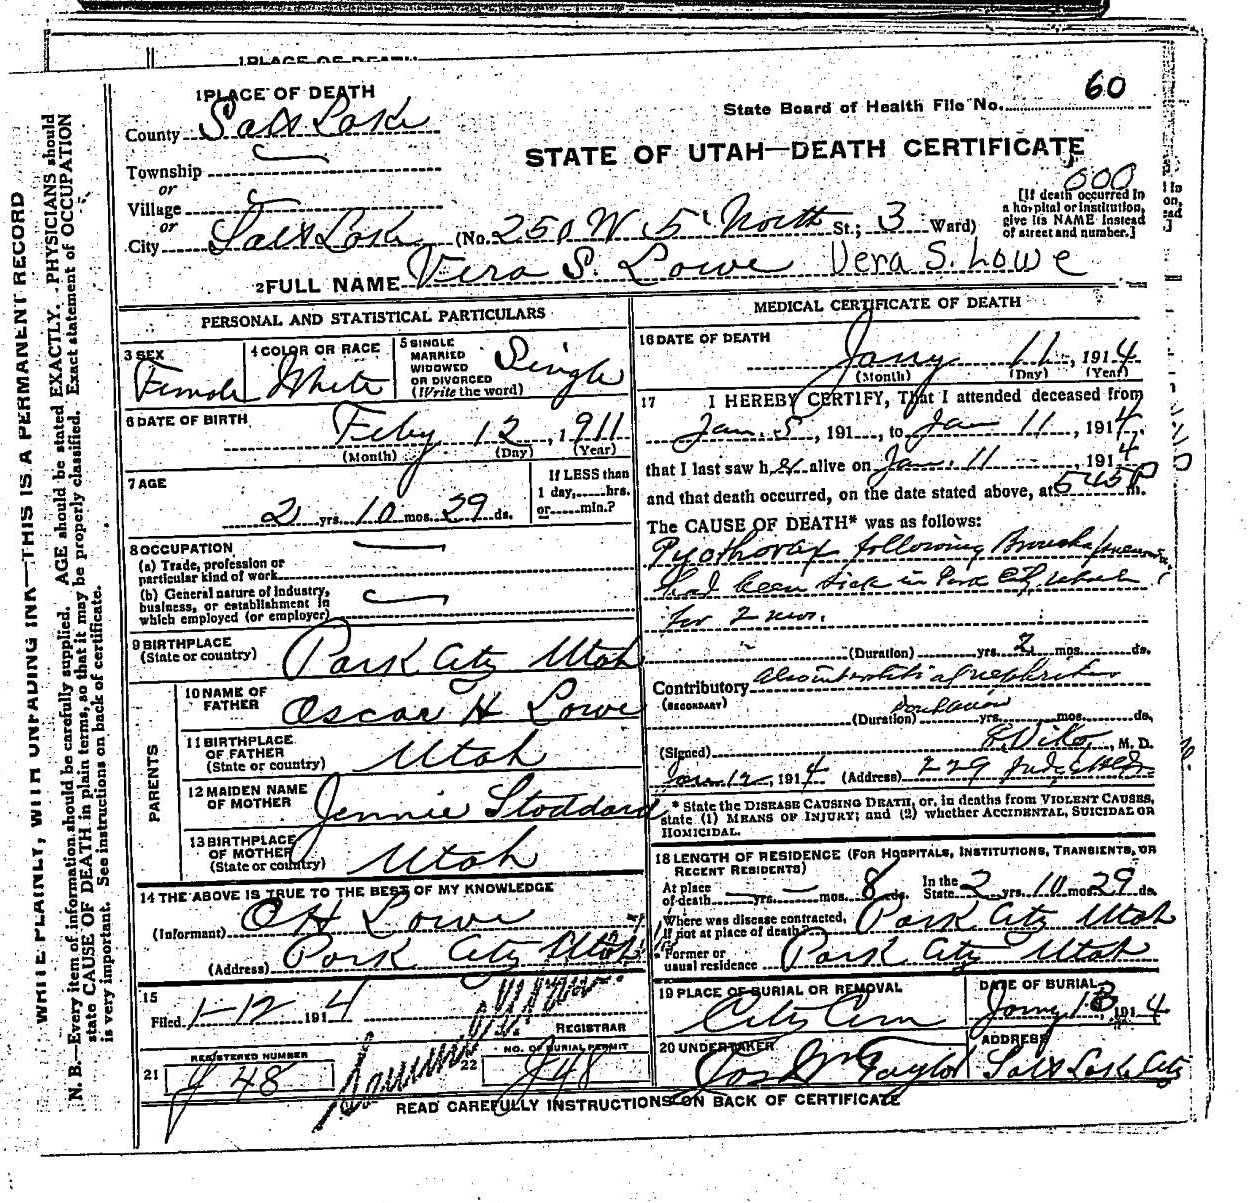 1 PLACE OF DEATH
60
State Board of Health File No.
1 PLACE OF DEATH
County Salt Lake
STATE OF UTAH—DEATH CERTIFICATE
Township
or
Village
or
City Salt Lake (No. 250 W 5' North St.; 3 Ward)
000
[If death occurred in
a hospital or institution,
give its NAME instead
of street and number.]
2 FULL NAME Vera S. Lowe Vera S. Lowe
PERSONAL AND STATISTICAL PARTICULARS
3 SEX
Female
4 COLOR OR RACE
White
5 SINGLE
MARRIED
WIDOWED
OR DIVORCED
(Write the word)
Single
6 DATE OF BIRTH
Feby 12, 1911
(Month) (Day) (Year)
7 AGE
2 yrs. 10 mos. 29 ds.
If LESS than
1 day, hrs.
or min.?
8 OCCUPATION
(a) Trade, profession or
particular kind of work
(b) General nature of industry,
business, or establishment in
which employed (or employer)
9 BIRTHPLACE
(State or country)
Park City Utah
PARENTS
10 NAME OF
FATHER
Oscar H Lowe
11 BIRTHPLACE
OF FATHER
(State or country)
Utah
12 MAIDEN NAME
OF MOTHER
Jennie Stoddard
13 BIRTHPLACE
OF MOTHER
(State or country)
Utah
14 THE ABOVE IS TRUE TO THE BEST OF MY KNOWLEDGE
(Informant) O H Lowe
(Address) Park City Utah
15
Filed 1-12, 1914
REGISTRAR
REGISTERED NUMBER
21 J 48
NO. OF BURIAL PERMIT
22 J 48
MEDICAL CERTIFICATE OF DEATH
16 DATE OF DEATH
Jany 11, 1914
(Month) (Day) (Year)
17 I HEREBY CERTIFY, That I attended deceased from
Jan. 5, 191, to Jan 11, 1914
that I last saw her alive on Jan. 11, 1914
and that death occurred, on the date stated above, at 545 P m.
The CAUSE OF DEATH* was as follows:
Pyothorax following Broncho pneumonia
Had been sick in Park City, Utah
for 2 mos.
(Duration) yrs. 2 mos. ds.
Contributory
(SECONDARY)
(Duration) yrs. mos. ds.
(Signed) M. D.
Jan 12, 1914 (Address) 229 Judge Bldg
* State the DISEASE CAUSING DEATH, or, in deaths from VIOLENT CAUSES,
state (1) MEANS OF INJURY; and (2) whether ACCIDENTAL, SUICIDAL OR
HOMICIDAL.
18 LENGTH OF RESIDENCE (FOR HOSPITALS, INSTITUTIONS, TRANSIENTS, OR
RECENT RESIDENTS)
At place
of death mos. 8 ds.
In the
State 2 yrs. 10 mos. 29 ds.
Where was disease contracted,
If not at place of death?
Park City Utah
Former or
usual residence Park City Utah
19 PLACE OF BURIAL OR REMOVAL
City Cem
DATE OF BURIAL
Jany 13, 1914
20 UNDERTAKER
Jos Wm Taylor
ADDRESS
Salt Lake City
READ CAREFULLY INSTRUCTIONS ON BACK OF CERTIFICATE
WRITE PLAINLY, WITH UNFADING INK—THIS IS A PERMANENT RECORD
N. B.—Every item of information should be carefully supplied. AGE should be stated EXACTLY. PHYSICIANS should
state CAUSE OF DEATH in plain terms, so that it may be properly classified. Exact statement of OCCUPATION
is very important. See instructions on back of certificate.